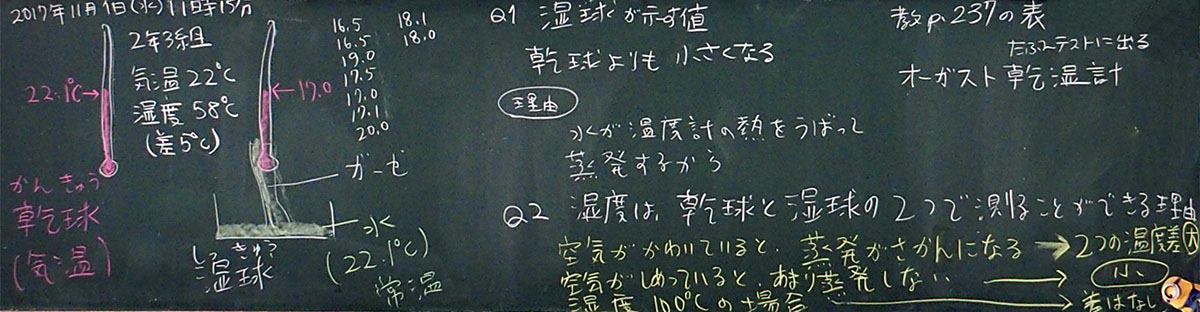 2017年11月1日(水)11時15分
2年3組
気温22℃
湿度58℃
(差5℃)
22.1℃→
←17.0
16.5
16.5
19.0
17.5
17.0
17.1
20.0
18.1
18.0
ガーゼ
水
(22.1℃)
常温
かんきゅう
乾球
(気温)
しっきゅう
湿球
Q1 湿球が示す値
乾球よりも小さくなる
理由
水が温度計の熱をうばって
蒸発するから
教p.237の表
たぶんテストに出る
オーガスト乾湿計
Q2 湿度は、乾球と湿球の2つで測ることができる理由
空気がかわいていると、蒸発がさかんになる → 2つの温度差大
空気がしめっていると、あまり蒸発しない → 小
湿度100℃の場合 → 差はなし